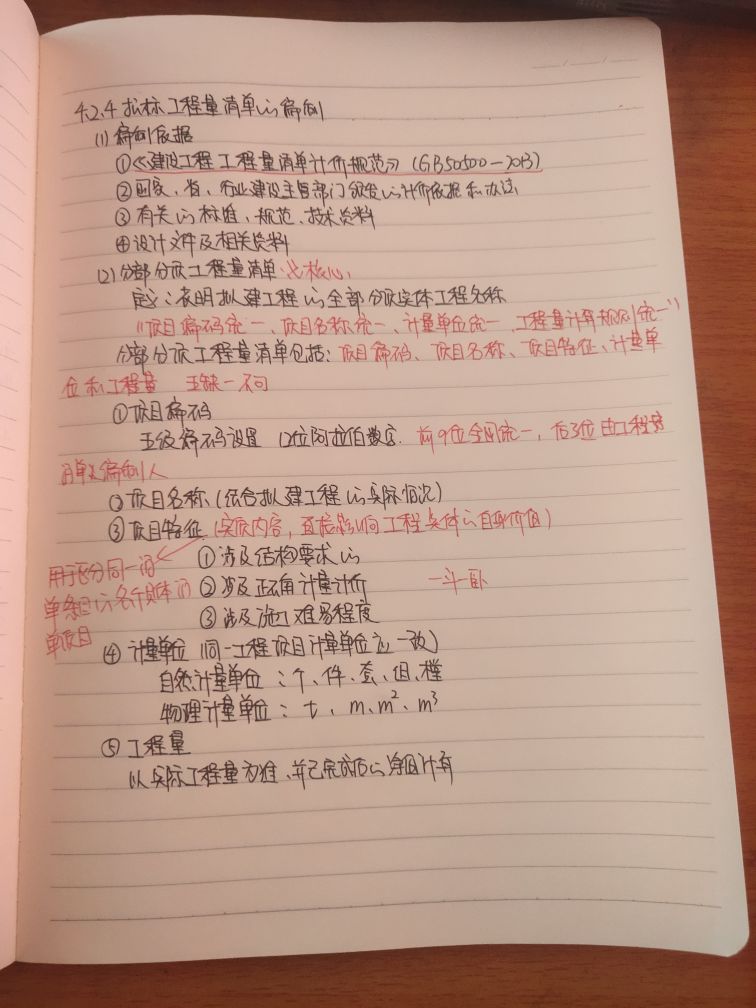 4.2.4 招标工程量清单的编制
(1) 编制依据
①《建设工程工程量清单计价规范》(GB50500-2013)
② 国家、省、行业建设主管部门颁发的计价依据和办法
③ 有关的标准、规范、技术资料
④ 设计文件及相关资料
(2) 分部分项工程量清单 核心
定义：表明拟建工程的全部分项实体工程名称
"项目编码统一、项目名称统一、计量单位统一、工程量计算规则统一"
分部分项工程量清单包括：项目编码、项目名称、项目特征、计量单
位和工程量 五缺一不可
① 项目编码
五级编码设置 12位阿拉伯数字. 前9位全国统一，后3位由工程量
清单编制人
② 项目名称 (结合拟建工程的实际情况)
③ 项目特征 (实质内容，直接影响工程实体的自身价值)
用于区分同一清
单条目的各个具体的
单项目
① 涉及结构要求的
② 涉及正确计量计价
③ 涉及施工难易程度
④ 计量单位 (同一工程项目计量单位应一致)
自然计量单位：个、件、套、组、樘
物理计量单位：t、m、m²、m³
⑤ 工程量
以实际工程量为准、并已完成后的净值计算